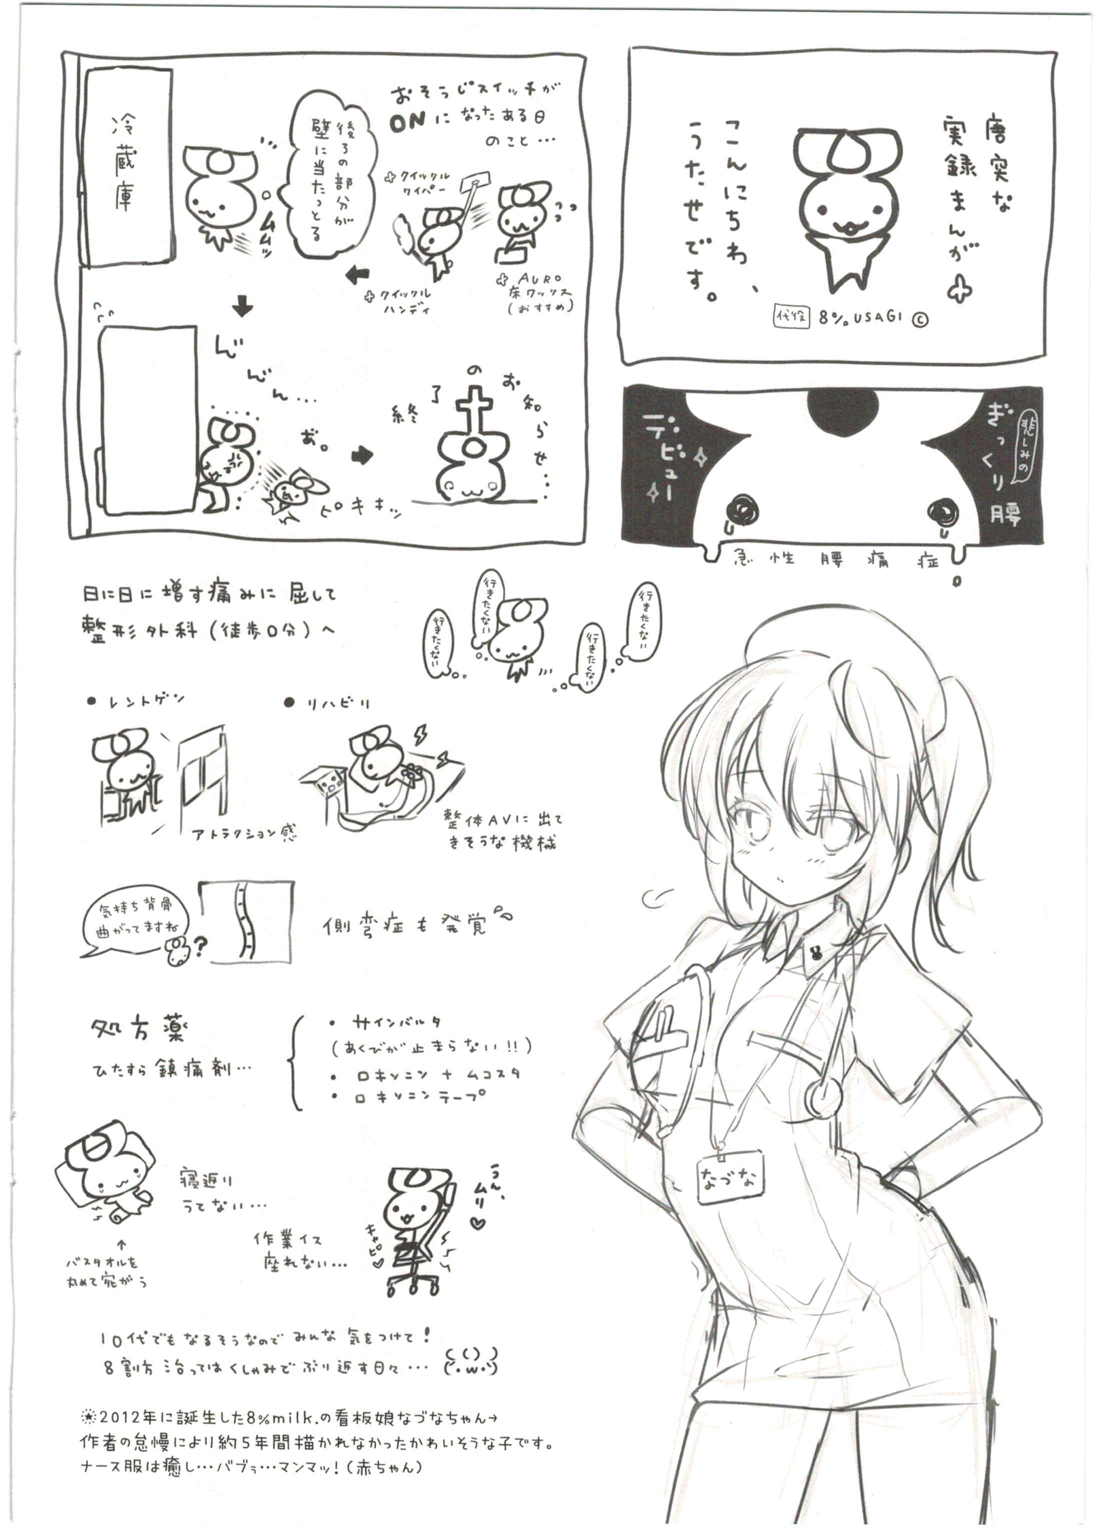 唐突な
実録まんが
こんにちわ、
うたせです。
代役 8% USAGI ©
おそうじスイッチが
ONになったある日
のこと…
クイックル
ワイパー
クイックル
ハンディ
AURO
床ワックス
(おすすめ)
後ろの部分が
壁に当たっとる
ムムッ
冷蔵庫
ピキキッ
終了のお知らせ…
悲しみの
ぎっくり腰
デビュー
急性腰痛症
日に日に増す痛みに屈して
整形外科(徒歩0分)へ
行きたくない
行きたくない
行きたくない
行きたくない
• レントゲン
アトラクション感
• リハビリ
整体AVに出て
きそうな機械
気持ち背骨
曲がってますね
?
側弯症も発覚
処方薬
ひたすら鎮痛剤…
• サインバルタ
(あくびが止まらない!!)
• ロキソニン + ムコスタ
• ロキソニンテープ
寝返り
うてない…
↑
バスタオルを
丸めて宛がう
作業イス
座れない…
キャピ♡
うん、
ムリ♡
10代でもなるそうなのでみんな気をつけて!
8割方治ってはくしゃみでぶり返す日々…
なづな
※2012年に誕生した8%milk.の看板娘なづなちゃん→
作者の怠慢により約5年間描かれなかったかわいそうな子です。
ナース服は癒し…バブゥ…マンマッ!(赤ちゃん)